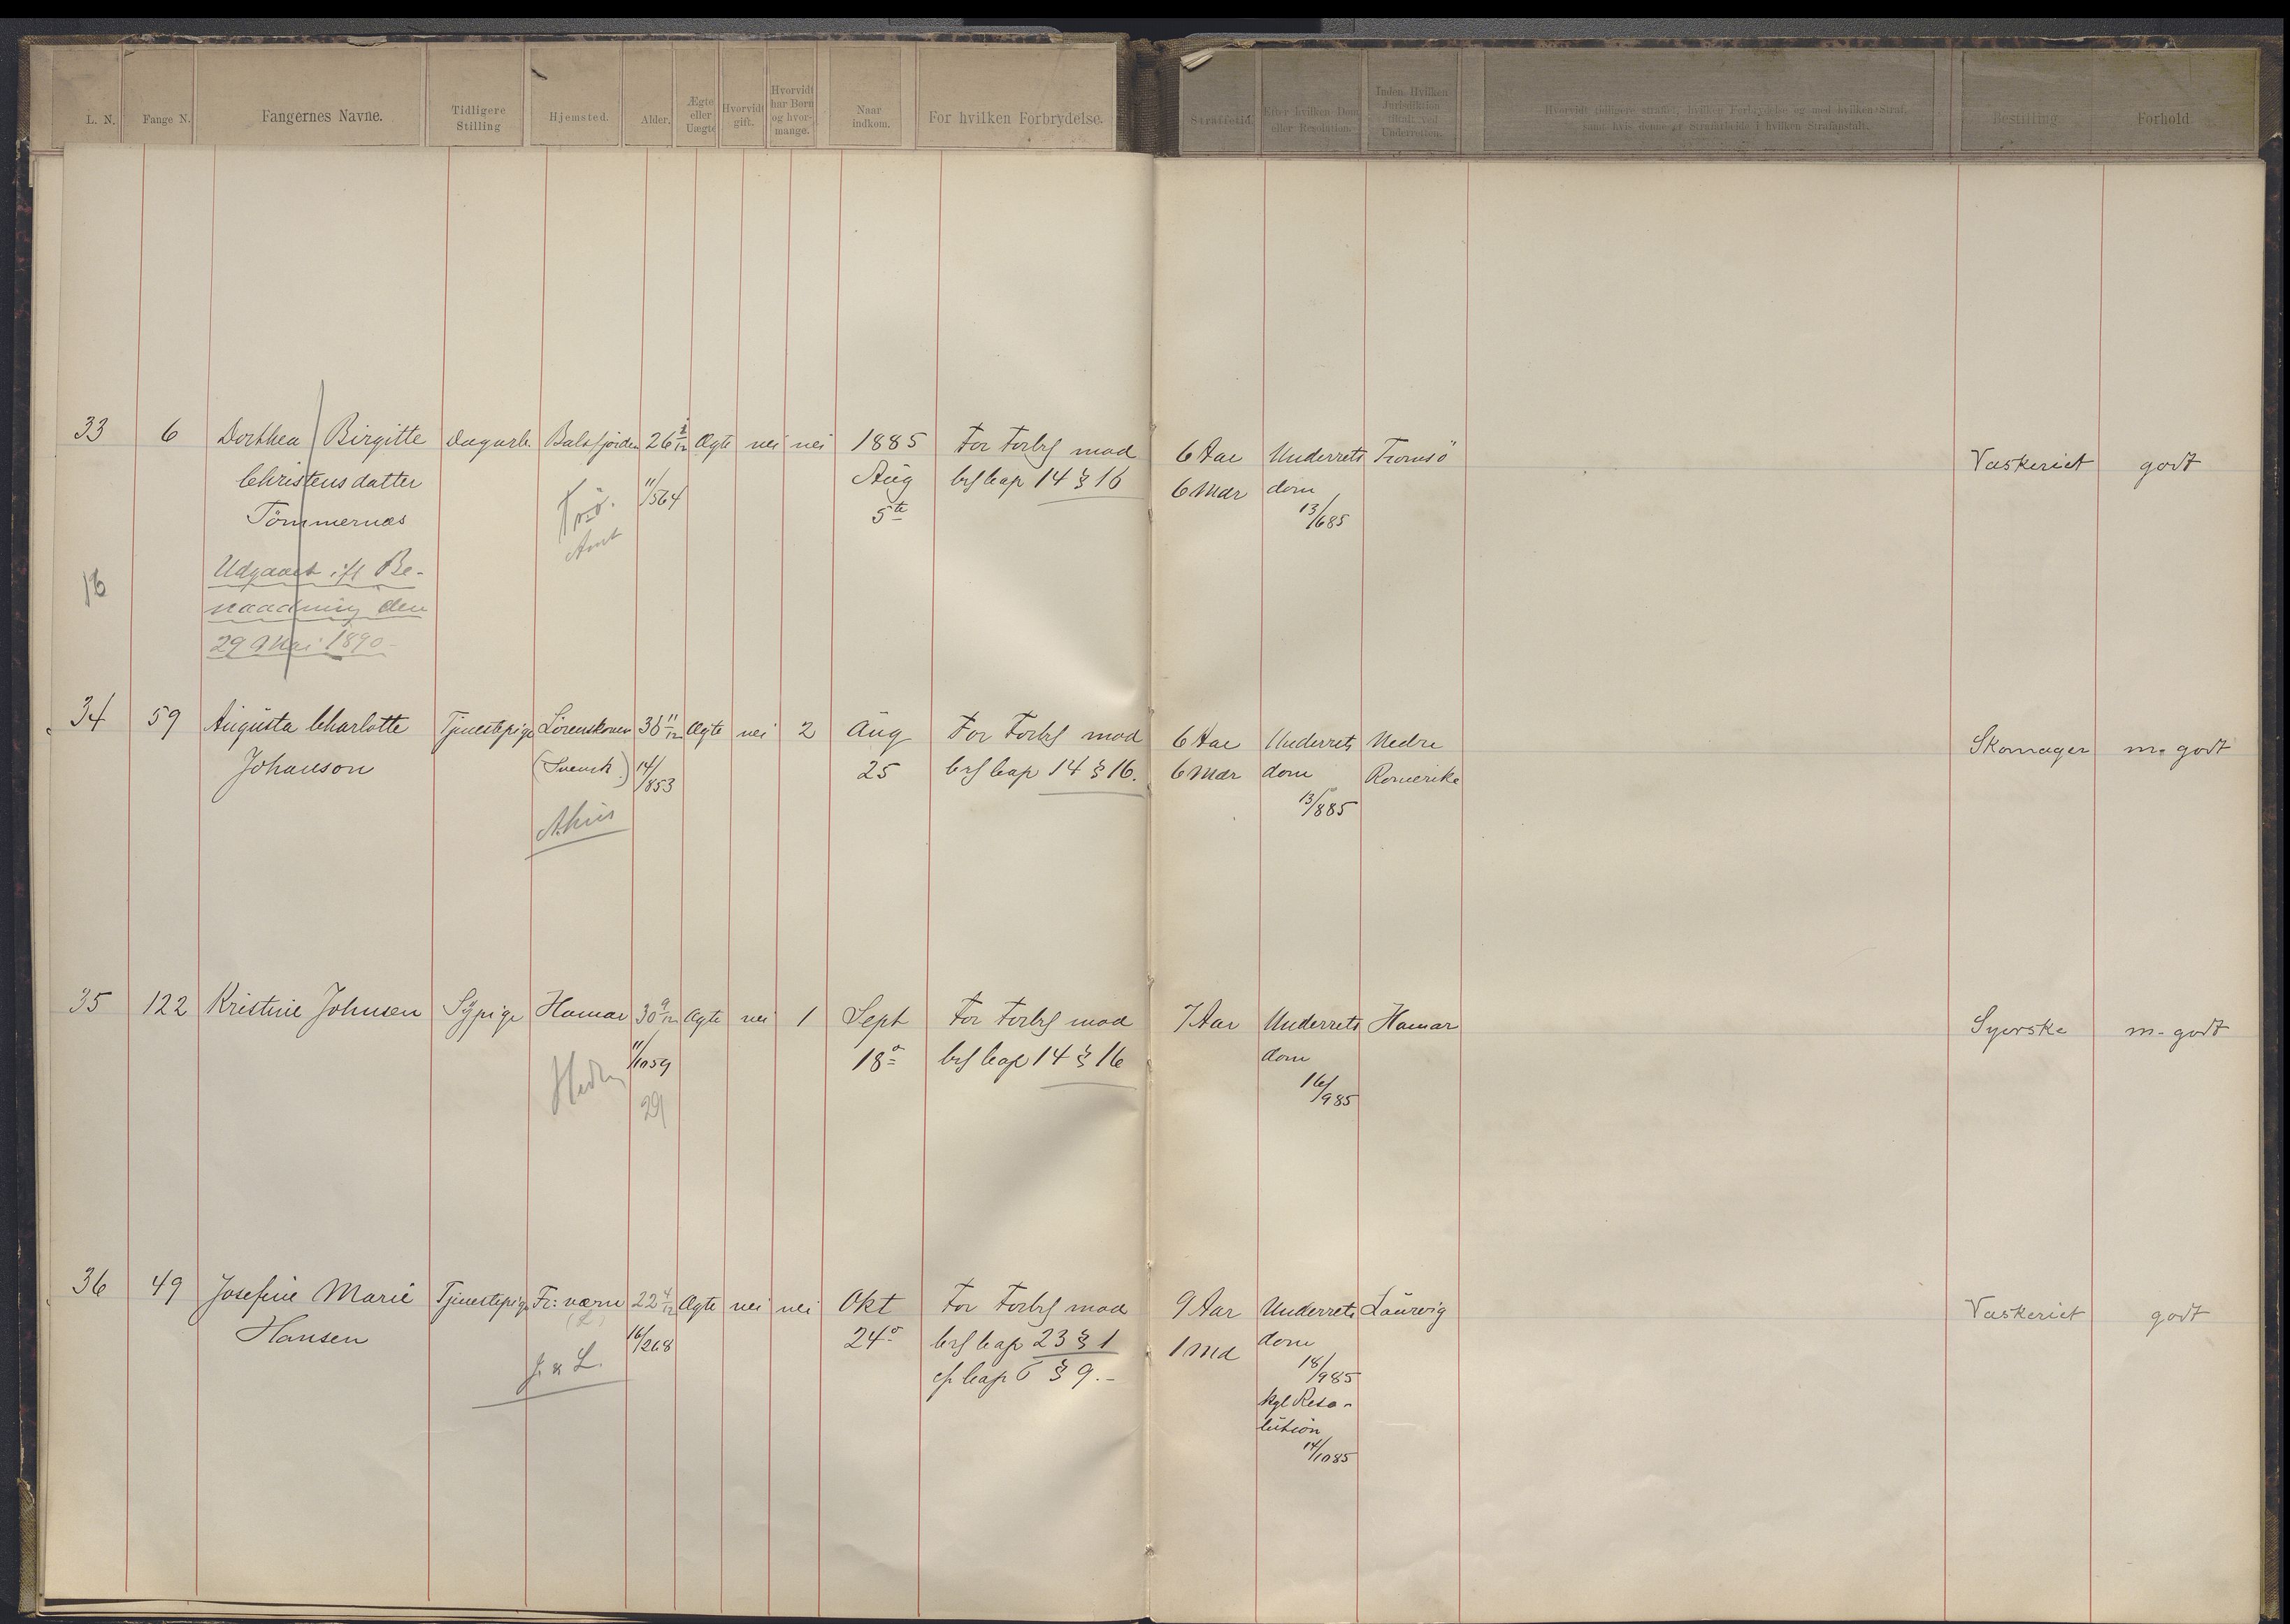 L. N.
Fange N.
Fangernes Navne.
Tidligere
Stilling
Hjemsted.
Alder.
Ægte
eller
Uægte
Hvorvidt
gift.
Hvorvidt
har Børn
og hvor-
mange.
Naar
indkom.
For hvilken Forbrydelse.
Straffetid.
Efter hvilken Dom
eller Resolution.
Inden Hvilken
Jurisdiktion
tilealt ved
Underretten.
Hvorvidt tidligere straffet, hvilken Forbrydelse og med hvilken Straf,
samt hvis denne er Strafarbeide i hvilken Strafanstalt.
Bestilling
Forhold
33 6 Dorthea Birgitte Dagarb. Balsfjorden 26 Ægte nei nei 1885 For Forbr mod 6 Aar Underrets Tromsö Vaskeriet godt
Christensdatter 11/5 64 Aug brl Cap 14 § 16 6 Mdr dom
Tömmernæs 5te 13/6 85
Amt
Udgaaet ifl Be-
16
naadning den
29 Mai 1890.
34 59 Augusta Charlotte Tjenestepige Lörenskoven 11/12 Ægte nei 2 Aug For Forbr mod 6 Aar Underrets Nedre Skomager m. godt
Johanson (Svensk) 14/8 53 25 brl Cap 14 § 16. 6 Mdr dom Romerike
13/8 85
Ahus
35 122 Kristine Johnsen Sypige Hamar 30 9/12 Ægte nei 1 Sept For Forbr mod 7 Aar Underrets Hamar Syerske m. godt
11/10 59 18 brl Cap 14 § 16 dom
Hedm 16/9 85
29
36 49 Josefine Marie Tjenestepige Fr: værn 22 4/12 Ægte nei nei Okt For Forbr mod 9 Aar Underrets Laurvig Vaskeriet godt
(L)
Hansen 16/2 68 24 brl Cap 23 § 1 1 Md dom
J. & L. cfr Cap 6 § 9.- 18/9 85
kgl Reso-
lution
14/10 85